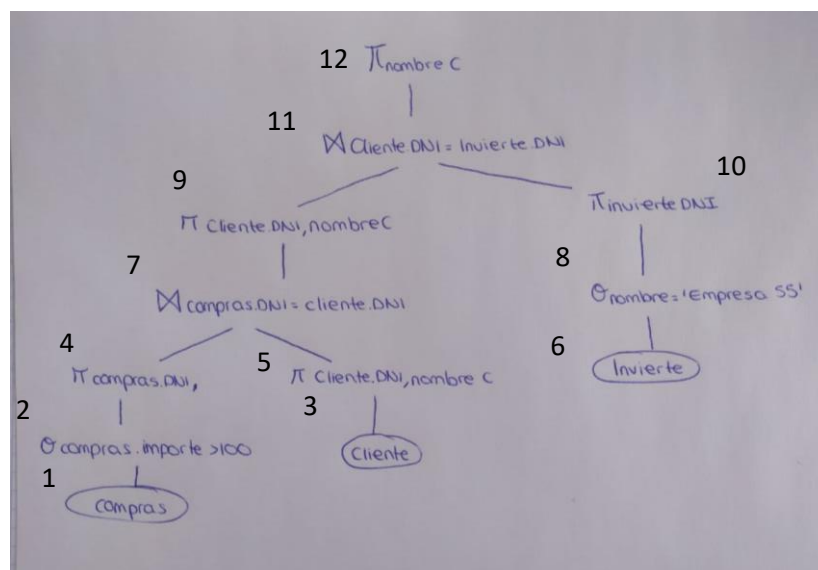 12 πnombre C
11
⋈ Cliente.DNI = Invierte.DNI
9 10
π Cliente.DNI, nombreC
π invierte DNI
7 8
⋈ compras.DNI = cliente.DNI
σ nombre = 'Empresa 55'
4 5 6
π compras.DNI,
π Cliente.DNI, nombre C
Invierte
2 3
σ compras.importe >100
Cliente
1
compras